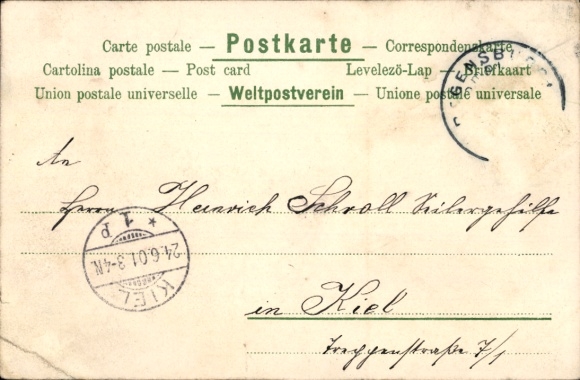 Carte postale — Postkarte — Correspondenzkarte
Cartolina postale — Post card Levelező-Lap — Briefkaart
Union postale universelle — Weltpostverein — Unione postale universale
REGENSBURG
An
Herrn Heinrich Schroll Seilergehilfe
* 1 P
24.6.01.3-4N.
KIEL
in Kiel
Treppenstraße 7/1